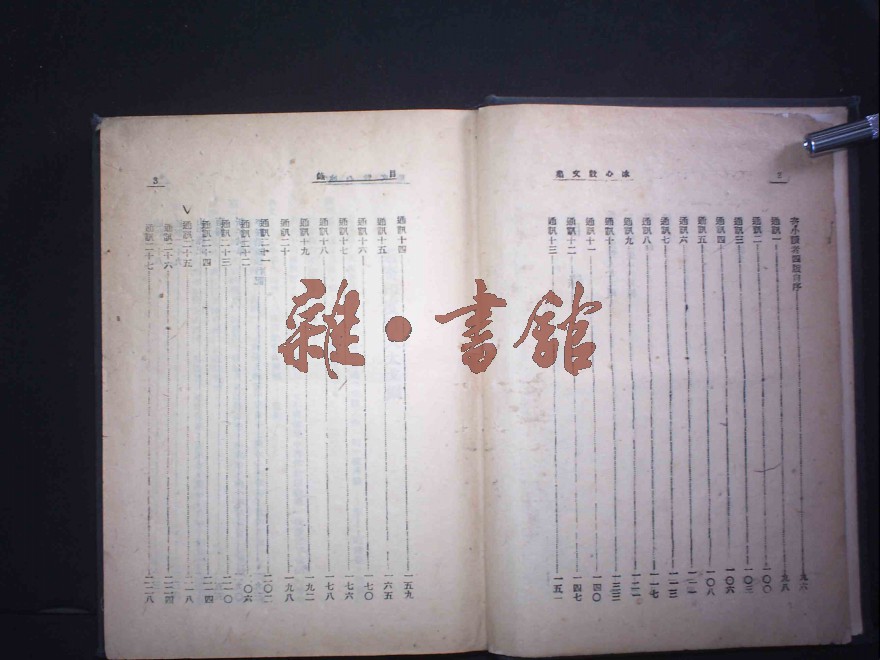 2
冰心散文選
寄小讀者四版自序 九六
通訊一 九八
通訊二 一〇〇
通訊三 一〇三
通訊四 一〇六
通訊五 一〇八
通訊六
通訊七 一一三
通訊八 一一七
通訊九
通訊十
通訊十一 一四〇
通訊十二 一四七
通訊十三
3
目
通訊十四 一五九
通訊十五 一六五
通訊十六 一七〇
通訊十七 一七六
通訊十八 一七八
通訊十九
通訊二十 一九八
通訊二十一 二〇二
通訊二十二
通訊二十三 二一〇
通訊二十四 二一四
通訊二十五 二一八
通訊二十六 二二四
通訊二十七 二二八
雜・書館